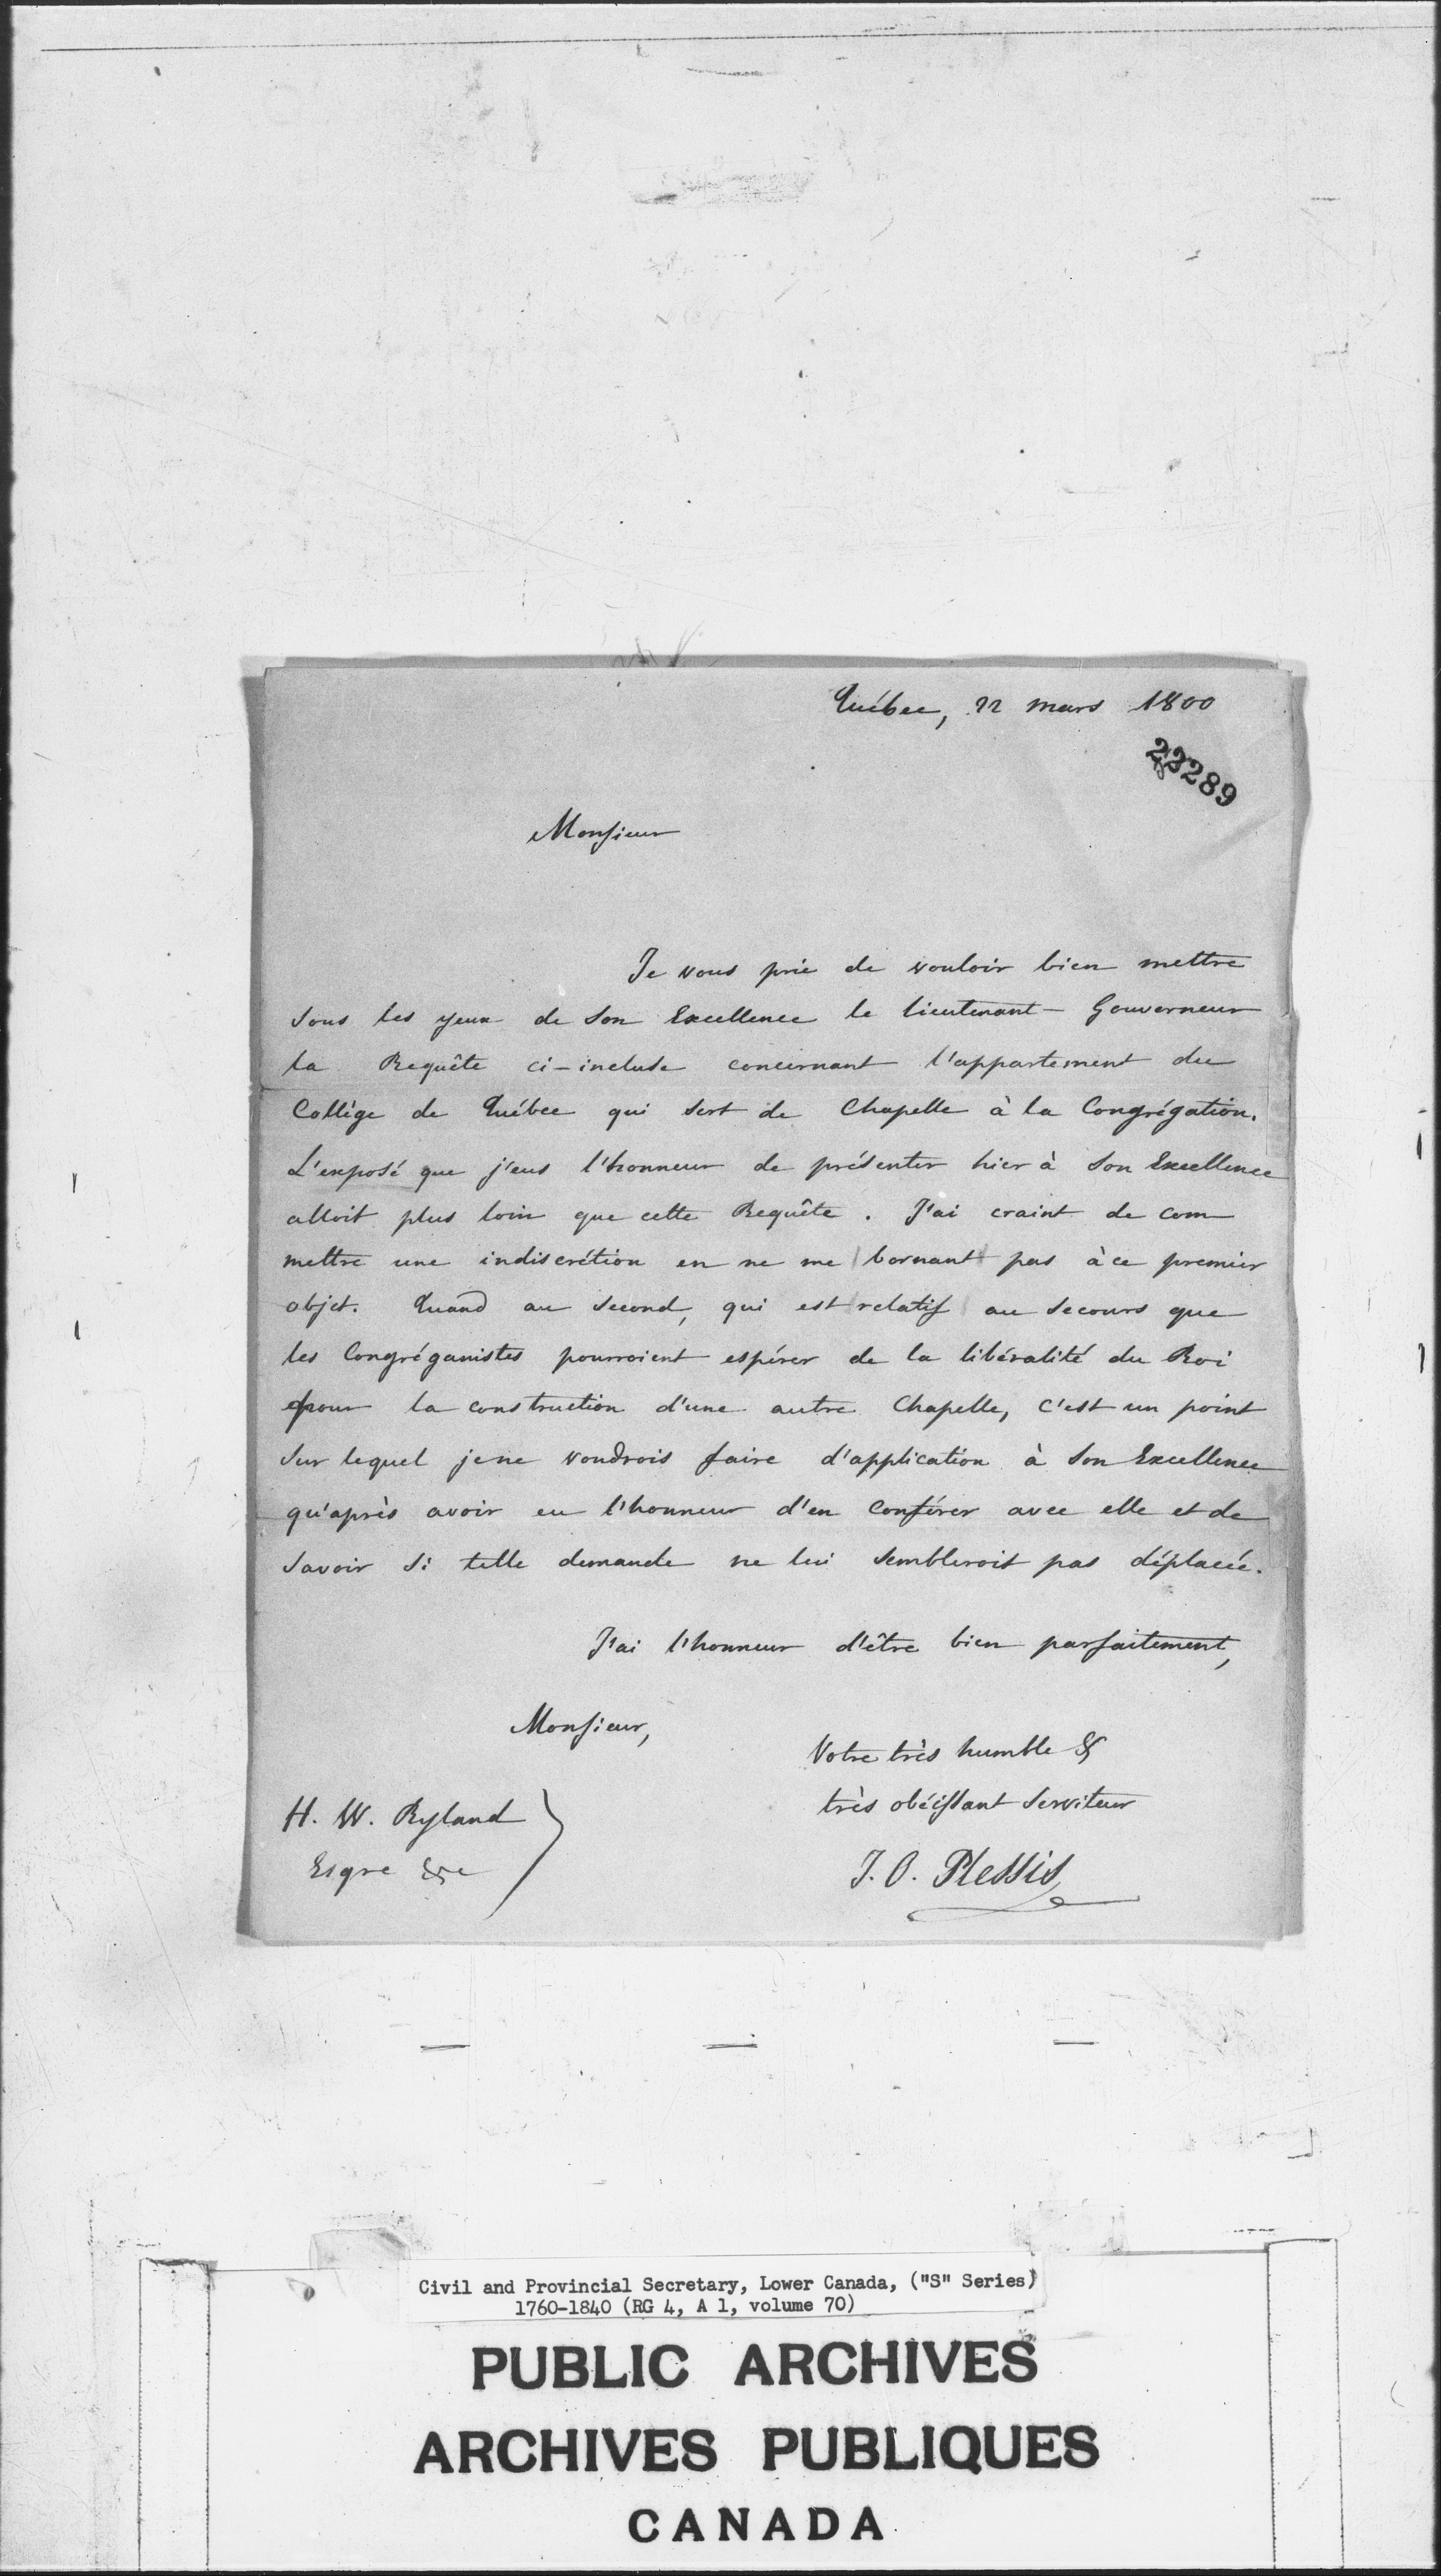 Québec, 22 mars 1800
23289
Monsieur
Je vous prie de vouloir bien mettre
sous les yeux de Son Excellence le Lieutenant-Gouverneur
la Requête ci-incluse concernant l'appartement du
Collège de Québec qui sert de Chapelle à la Congrégation.
L'exposé que j'eus l'honneur de présenter hier à Son Excellence
alloit plus loin que cette Requête. J'ai craint de com
mettre une indiscrétion en ne me bornant pas à ce premier
objet. Quand au second, qui est relatif au secours que
les Congréganistes pourroient espérer de la libéralité du Roi
pour la construction d'une autre Chapelle, c'est un point
sur lequel je ne voudrois faire d'application à Son Excellence
qu'après avoir eu l'honneur d'en conférer avec elle et de
savoir si telle demande ne lui sembleroit pas déplacée.
J'ai l'honneur d'être bien parfaitement,
Monsieur,
Votre très humble &
très obéissant Serviteur
J. O. Plessis
H. W. Ryland
Esqre &c
Civil and Provincial Secretary, Lower Canada, ("S" Series)
1760-1840 (RG 4, A 1, volume 70)
PUBLIC ARCHIVES
ARCHIVES PUBLIQUES
CANADA